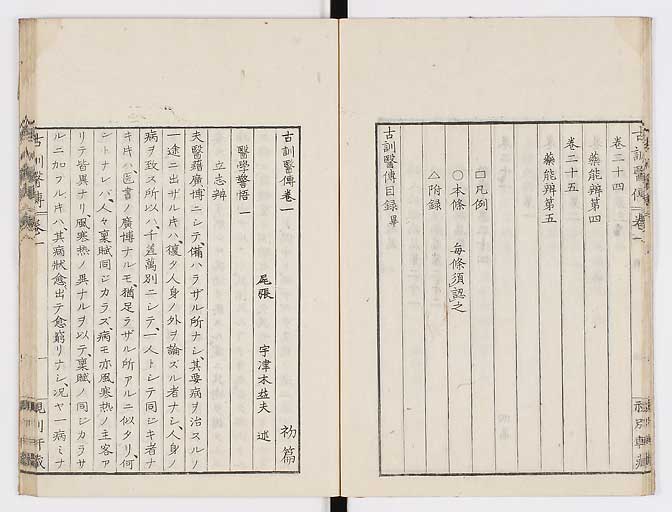 卷二十四
藥能辨第四
卷二十五
藥能辨第五
□凡例
○本條 每條須認之
△附錄
古訓醫傳目録畢
古訓醫傳卷一 初篇
尾張 宇津木益夫 述
醫學警悟一
立志辨
夫醫籍廣博ニシテ備ハラザル所ナシ、其要病ヲ治スルノ
一途ニ出ザル片ハ、穫タ人身ノ外ヲ論ズル者ナシ、人身ノ
病ヲ致ス所以ハ、千差萬別ニシテ、一人トシテ同ジキ者ナ
キ片ハ医書ノ廣博ナルモ、猶足ラザル所アルニ似タリ、何
ントナレバ、人々稟賦同ジカラズ病モ亦風寒热ノ主客ア
リテ皆異ナリ風、寒热ノ異ナルヲ以テ、稟賦ノ同ジカラサ
ルニ加フル片ハ、其病狀愈出テ愈窮リナシ、况ヤ一病ミナ
古訓醫傳 卷一